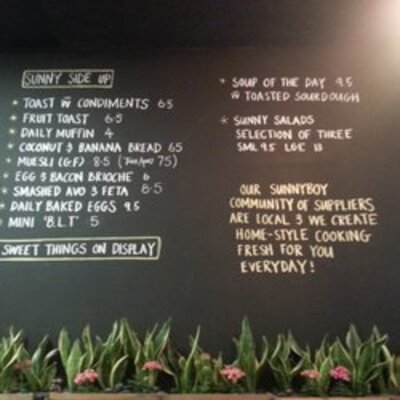 SUNNY SIDE UP
* TOAST W CONDIMENTS 6.5
* FRUIT TOAST 6.5
* DAILY MUFFIN 4
* COCONUT & BANANA BREAD 6.5
* MUESLI (G.F.) 8.5 (7.5)
* EGG & BACON BRIOCHE 6
* SMASHED AVO & FETA 8.5
* DAILY BAKED EGGS 9.5
* MINI 'B.L.T' 5
SWEET THINGS ON DISPLAY
* SOUP OF THE DAY 9.5
W TOASTED SOURDOUGH
* SUNNY SALADS
SELECTION OF THREE
SML 9.5 LGE 13
OUR SUNNYBOY
COMMUNITY OF SUPPLIERS
ARE LOCAL & WE CREATE
HOME-STYLE COOKING
FRESH FOR YOU
EVERYDAY!